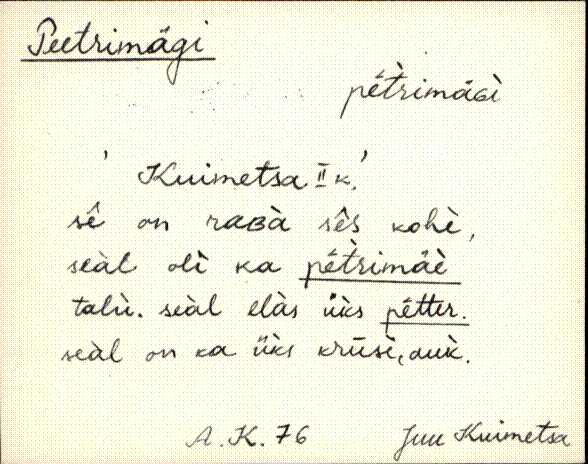 Peetrimägi
pétrimäɢì
'Kuimetsa II k.'
sê on raʙà sês kohè,
seàl olì ka pétrimäè
talù. seàl elàs üks pétter.
seàl on ka üks krūsì, auk.
A.K. 76 Juu Kuimetsa